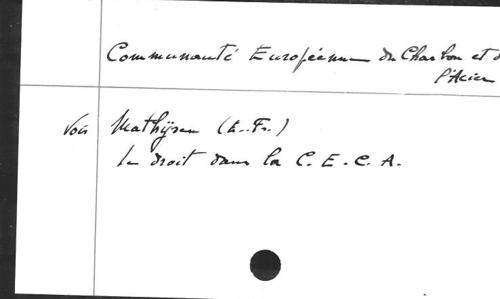 Communauté Européenne du Charbon et d
l'Acier
Voir Mathijsen (E. Fr.)
Le droit dans la C. E. C. A.